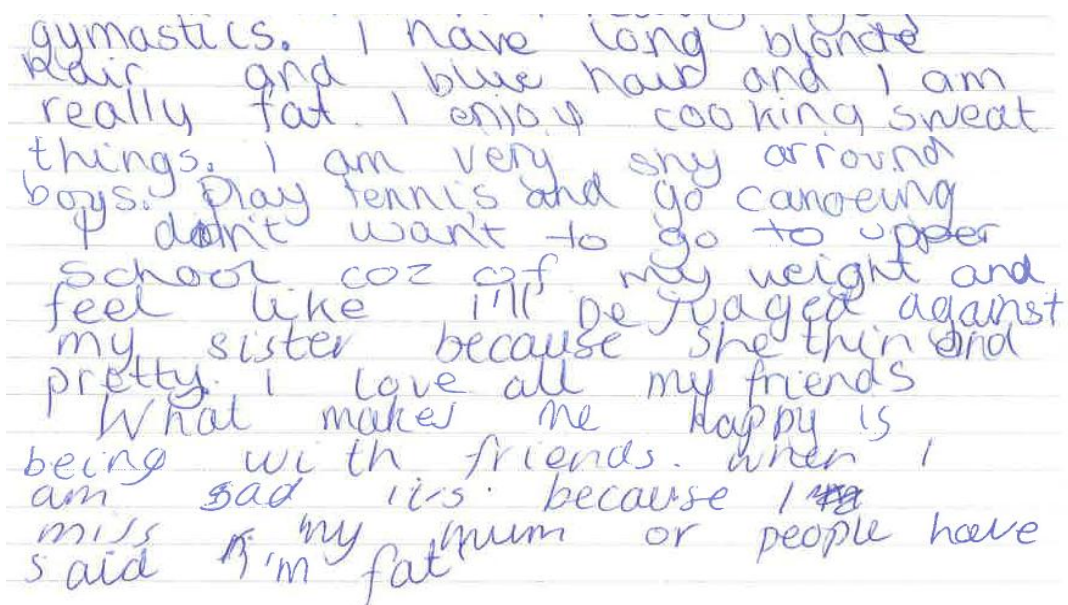 gymastics. I have long blonde
hair and blue hair and I am
really fat. I enjoy cooking sweat
things. I am very shy arround
boys. Play tennis and go canoeing
I don't want to go to upper
school coz of my weight and
feel like i'll be judged against
my sister because she thin and
pretty. I love all my friends
What makes me happy is
being with friends. When I
am sad it's because I
miss my mum or people have
said I'm fat